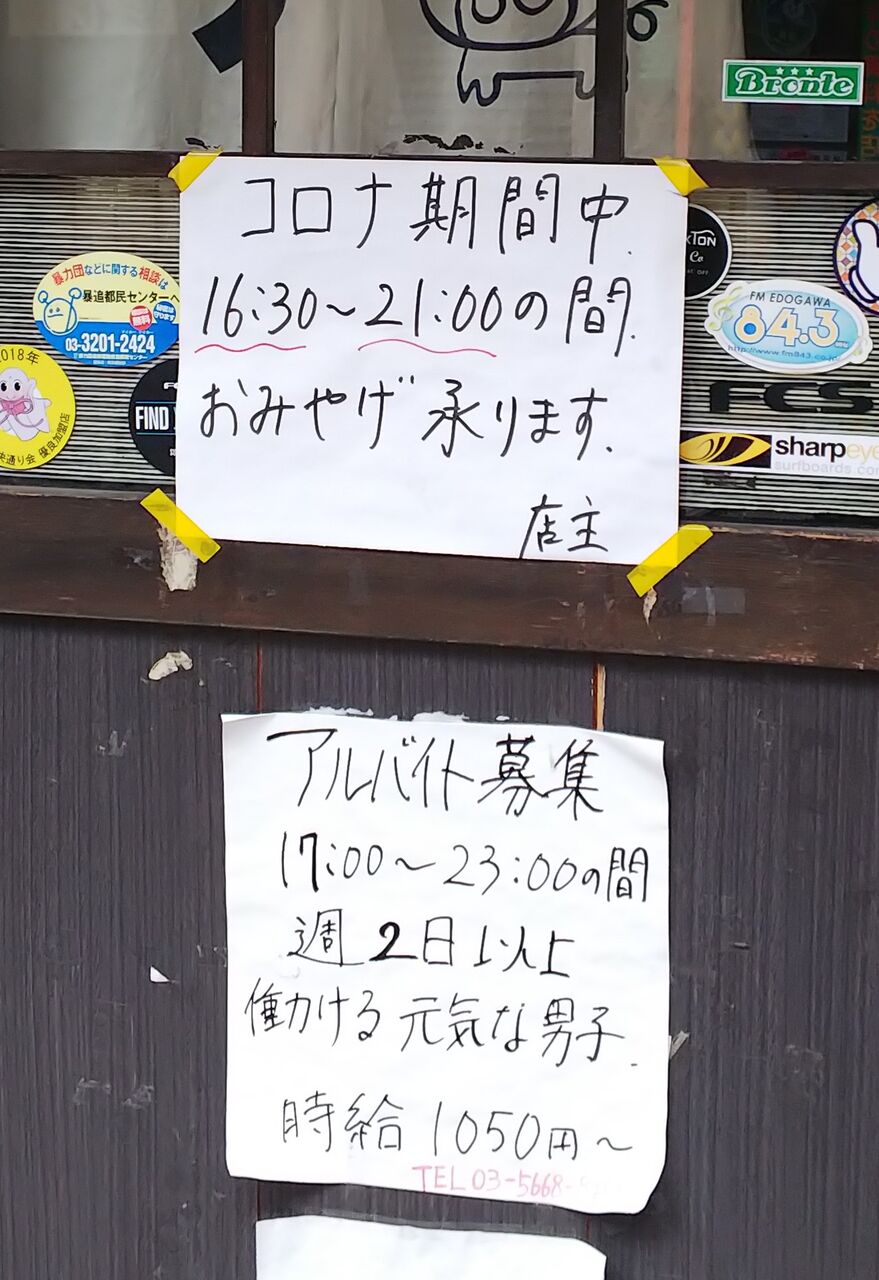 Bronte
コロナ期間中
16:30〜21:00の間
おみやげ承ります.
店主
暴力団などに関する相談は
暴追都民センターへ
03-3201-2424
2018年
優良加盟店
FIND
FM EDOGAWA
84.3
http://www.fm843.co.jp
FCS
sharpeye
surfboards.com
アルバイト募集
17:00〜23:00の間
週2日以上
働ける元気な男子.
時給1050円〜
TEL 03-5668-